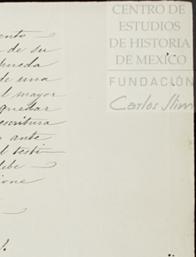 CENTRO DE
ESTUDIOS
DE HISTORIA
DE MEXICO
FUNDACIÓN
Carlos Slim
ento
de su
de una
l mayor
quedar
escritura
ante
l testi